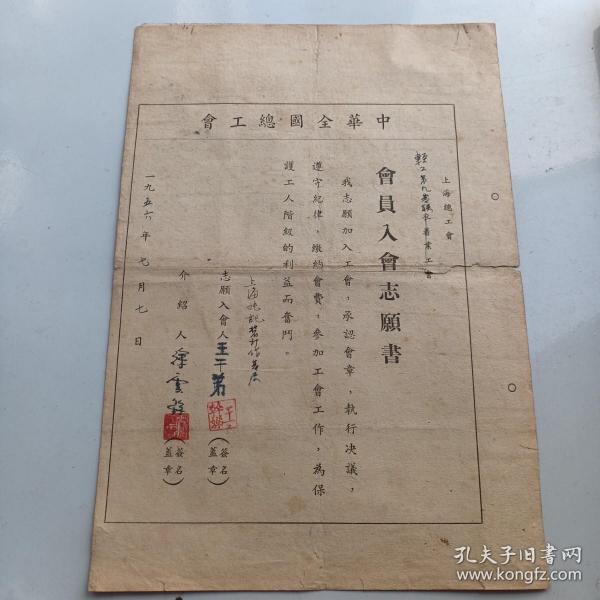 中華全國總工會
上海總工會
會員入會志願書
我志願加入工會，承認會章，執行決議，
遵守紀律，繳納會費，參加工會工作，為保
護工人階級的利益而奮鬥。
志願入會人王干弟（簽名蓋章）
介紹人（簽名蓋章）
一九五六年七月七日
孔夫子旧书网
www.kongfz.com